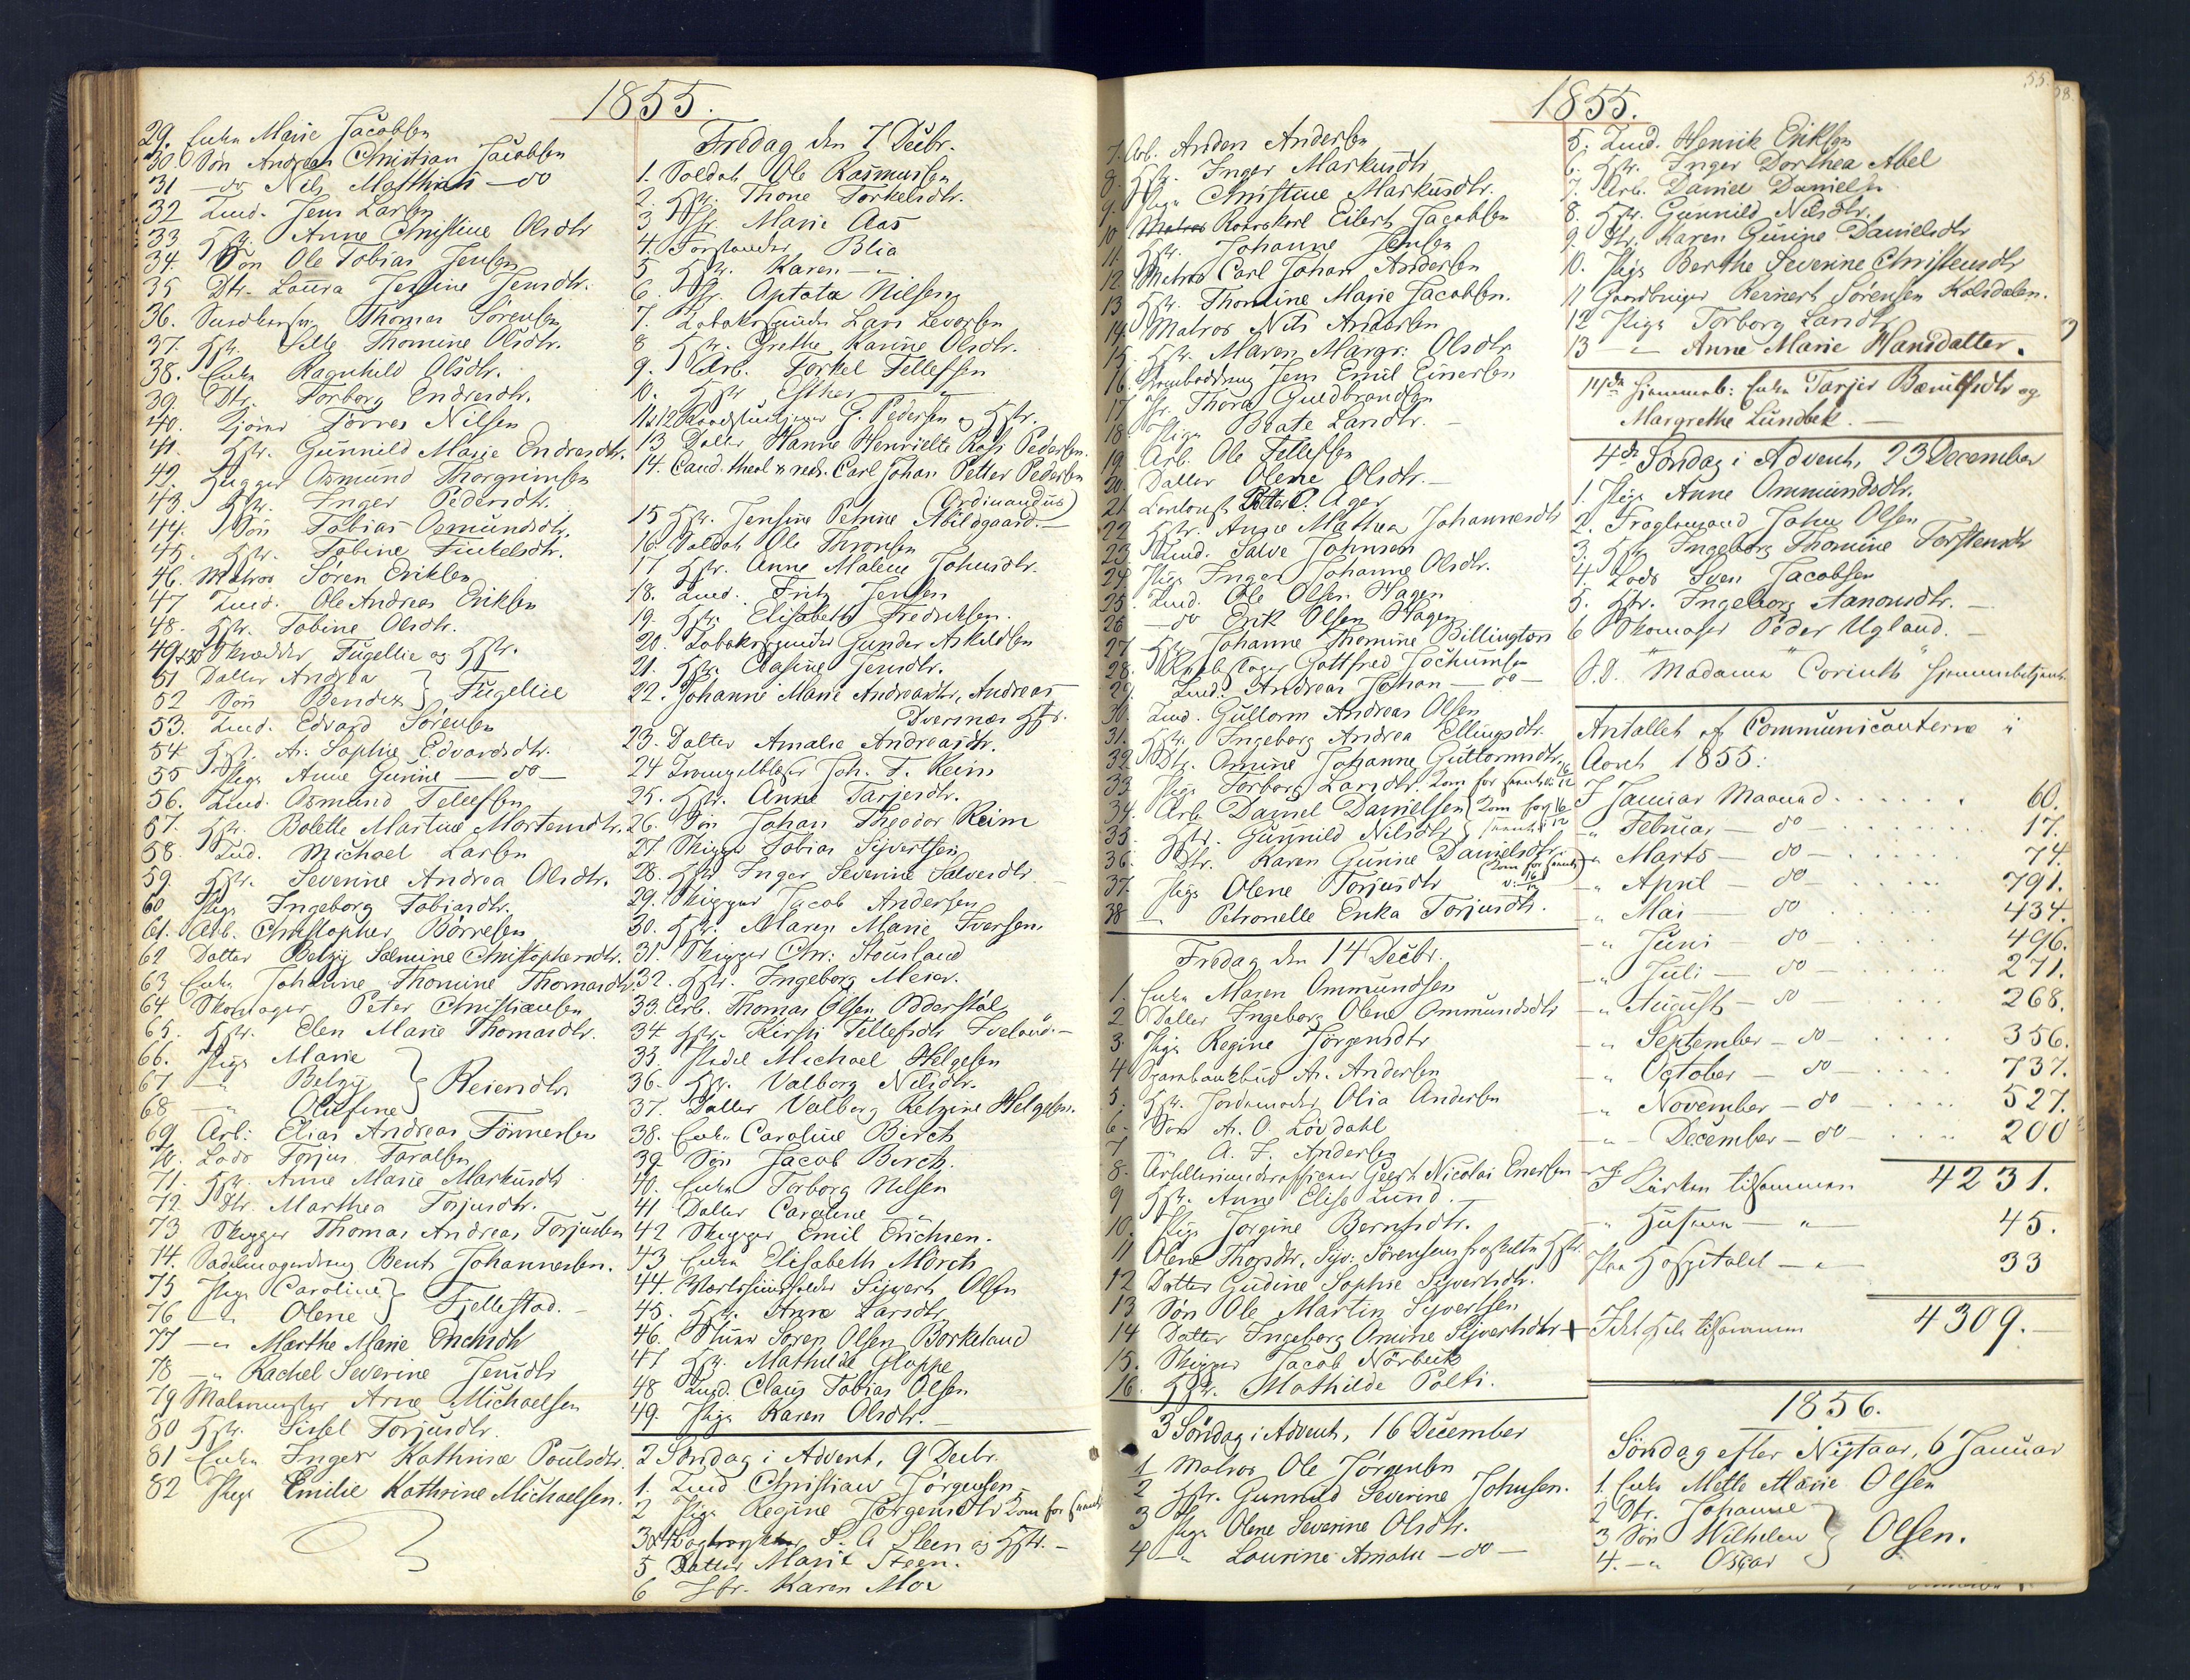 1855.
29. Enke Marie Jacobsen
30. Søn Andreas Christian Jacobsen
31 — do Nils Matthias — do
32 Tmd. Jens Larsen
33 Hstr. Anne Christine Olsdtr
34. Søn Ole Tobias Jensen
35 Dtr. Laura Jensine Jensdtr.
36. Thomas Sørensen
37. Hstr. Thomine Olsdtr.
38. Enke Ragnhild Olsdtr.
39. Dtr. Torborg Endresdtr.
40. Torres Nilsen
41. Hstr. Gunnild Marie Endresdtr.
42. Osmund Thorgrimsen
43. Hstr. Inger Pedersdtr.
44. Søn Tobias Osmundsdtr.
45. Hstr. Tobine Tinkelsdtr.
46. Matros Søren Eriksen
47 Tmd. Ole Andreas Eriksen
48. Hstr. Tobine Olsdtr.
49+50 Skrædder Fugellie og Hstr.
51 Datter Andrea
52 Søn Bendix } Fugellie
53. Tmd. Edvard Sørensen
54. Hstr. A. Sophie Edvardsdtr.
55 Pige Anne Gurine — do —
56. Tmd. Osmund Tellefsen
57. Hstr. Bolette Martine Mortensdtr.
58. Tmd. Michael Larsen
59. Hstr. Severine Andrea Olsdtr.
60 Pige Ingeborg Tobiasdtr.
61. Arb. Christopher Børresen
62 Datter Betzy Salmine Christophersdtr.
63 Enke Johanne Thomine Thomasdtr.
64. Skomager Peter Christiansen
65. Hstr. Elen Marie Thomasdtr.
66. Pige Marie
67 — " Betzy } Reiersdtr.
68 — " Olufine
69 Arb: Elias Andreas Tönnersen
70. Lods Torjus Taralsen
71. Hstr. Anne Marie Markusdtr
72. Dtr. Marthea Torjusdtr.
73 Skipper Thomas Andreas Torjussen
74. Bent Johannesen.
75 Pige Caroline
76 — " Olene } Fjellestad.
77 — " Marthe Marie Erichsdtr
78 — " Rachel Severine Jensdtr
79 Arne Michaelsen
80 Hstr. Sissel Torjusdtr.
81 Enke Inger Kathrine Poulsdtr.
82 Pige Emilie Kathrine Michaelsen.
Fredag den 7 Decbr.
1. Soldat Ole Rasmussen
2. Hstr. Thone Torkelsdtr.
3 Jfr. Marie Aas
4. Forstander Blia
5 Hstr. Karen — "
6. Jfr. Aptata Nilsen
7. Tobaksspinder Lars Levorsen
8 Hstr. Grethe Karine Olsdtr.
9. Arb. Torkel Tellefsen
10. Hstr Esther — "
11&12 G. Pedersen og Hstr.
13 Datter Hanne Henriette Pedersen.
14. Cand. theol. Carl Johan Petter Pedersen
(Ordinandus)
15 Hstr. Jensine Petrine Abildgaard. —
16. Soldat Ole Thronsen
17 Hstr. Anne Malene Johnsdtr.
18. Tmd. Fritz Jensen
19. Hstr. Elisabeth Fredriksen.
20. Tobaksspinder Gunder Askildsen
21. Hstr. Jensdtr.
22. Johanne Marie Andreasdtr, Andreas
Iversens Hstr.
23. Datter Amalie Andreasdtr.
24 Joh. T. Reim
25. Hstr. Anne Tarjesdtr.
26. Søn Johan Theodor Reim
27 Skipper Tobias Syvertsen
28. Hstr Inger Severine Salvesdtr
29. Skipper Jacob Andersen
30. Hstr. Maren Marie Iversen
31. Skipper Chr: Stousland
32. Hstr. Ingeborg Meier.
33. Arb. Thomas Olsen Odderstøl
34 Hstr. Kirsti Tellefsdtr —
35 Michael Helgesen
36. Hstr. Valborg Nilsdtr.
37. Datter Valborg Retzine Helgesen.
38. Enke Caroline Birch
39 Søn Jacob Birch.
40. Enke Torborg Nilsen
41 Datter Caroline — "
42 Skipper Emil Erichsen.
43 Enke Elisabeth Mörch
44. Syvert Olsen
45. Hstr. Anne Larsdtr.
46. Søren Olsen Borkeland
47 Hstr. Mathilde Gloppe
48 Tmd. Claus Tobias Olsen
49. Pige Karen Olsdtr. —
2 Søndag i Advent, 9 Decbr.
1. Tmd Christian Jørgensen
2 Pige Regine Jørgensdtr kom for seent
3&4 Bogtrykker S. A Steen og Hstr. —
5 Datter Marie Steen.
6 Jfr. Karen Moe
1855.
55.
7. Arb. Anders Andersen
8. Hstr. Inger Markusdtr
9. Pige Christine Markusdtr.
10 Rorskarl Eilert Jacobsen
11. Hstr. Johanne Jensen
12. Matros Carl Johan Andersen
13 Hstr. Thomine Marie Jacobsen.
14. Matros Nils Andersen
15. Hstr. Maren Margr. Olsdtr
16. Jens Emil Einersen
17 Jfr. Thora Guldbrandsen
18. Pige Beate Larsdtr. —
19. Arb. Ole Tellefsen
20. Datter Olene Olsdtr. —
21 Petter C. Ager
22 Hstr. Anne Mathea Johannesdtr
23 Tmd. Salve Johnsen
24 Pige Inger Johanne Olsdtr.
25. Tmd. Ole Olsen Hagen
26 — do Erik Olsen Hagen
27 Hstr. Johanne Thomine Billington
28. Gottfred Jochumsen
29. Tmd. Andreas Johan — do —
30. Tmd. Guttorm Andreas Olsen
31. Hstr. Ingeborg Andrea Ellingsdtr.
32 Dtr. Omine Johanne Guttormsdtr.
33 Pige Torborg Larsdtr. kom for seent 16/12
34. Arb. Daniel Danielsen } kom for
35. Hstr. Gunnild Nilsdtr } seent 16/12
36. Dtr. Karen Gurine Danielsdtr.
(kom for seent)
37 Pige Olene Torjusdtr 16/12
38 — " Petronelle Erika Torjusdtr.
Fredag den 14 Decbr.
1. Enke Maren Ommundsen
2 Datter Ingeborg Olene Ommundsdtr
3. Pige Regine Jörgensdtr
4 A. Andersen
5. Hstr. Jordemoder Olia Andersen
6. Søn A. O. Lövdahl
7 " A. F. Andersen
8. Geert Nicolai Enersen
9 Hstr. Anne Elise Lund. —
10. Pige Jorgine Berntsdtr.
11 Olene Thorsdtr, Syv: Sörensens fraskilte Hstr.
12 Datter Gudine Sophie Syvertsdtr.
13 Søn Ole Martin Syvertsen
14 Datter Ingeborg Omine Syvertsdtr +
15. Skipper Jacob Nörbeck
16. Hstr. Mathilde Polti.
3 Söndag i Advent, 16 December
1 Matros Ole Jørgensen
2 Hstr. Gunnild Severine Johnsen.
3 Pige Olene Severine Olsdtr.
4 — " Laurine Amalie — do —
5. Tmd. Henrik Eriksen
6. Hstr. Inger Dorthea Abel
7. Arb. Daniel Danielsen
8. Hstr. Gunnild Nilsdtr.
9. Dtr. Karen Gurine Danielsdtr
10. Pige Berthe Severine Christensdtr
11 Gaardbruger Reinert Sørensen Kalsdalen.
12 Pige Torborg Larsdtr
13 — " Anne Marie Hansdatter.
14de hjemmeb: Enke Tarjer og
Margrethe Lundbek. —
4de Søndag i Advent, 23 December
1. Pige Anne Ommundsdtr.
2. John Olsen
3. Hstr Ingeborg Thomine Torstensdtr
4. Lods Sven Jacobsen
5. Hstr. Ingeborg Aanonsdtr. —
6 Skomager Peder Ugland. —
S.D. "Madame" Corinth hjemmebetjent.
Antallet af Communicanterne i
Aaret 1855:
I Januar Maaned . . . . . 60.
— " Februar — do . . . . . 17.
— " Marts — do — . . . . . 74.
— " April — do — . . . . . 791.
— " Mai — do . . . . . 434.
— " Juni — do — . . . . . 496.
— " Juli — do — . . . . . 271.
— " August — do — . . . . 268.
— " September — do — . . . . 356.
— " October — do — . . . . 737.
— " November — do — . . . . 527.
— " December — do — . . . . 200
I Kirken tilsammen 4231.
— " Husene — " — 45.
Paa Hospitalet — " — 33
Idet Hele tilsammen 4309. —
1856.
Søndag efter Nytaar, 6 Januar
1. Enke Mette Marie Olsen
2 Dtr. Johanne
3 Søn Wilhelm } Olsen.
4. — " Oscar